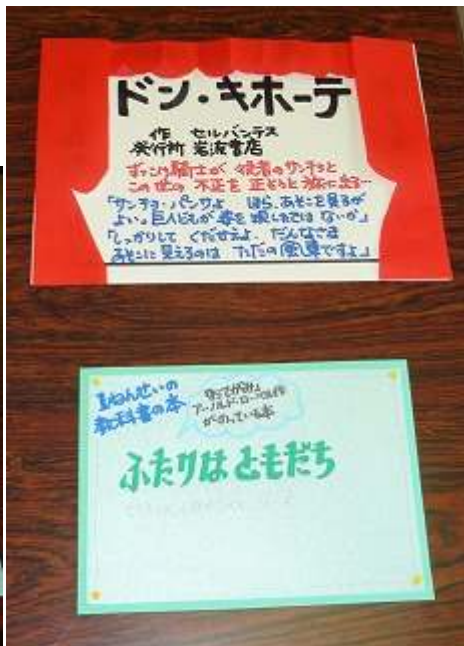 ドン・キホーテ
作 セルバンテス
発行所 岩波書店
ずっこけ騎士が 従者のサンチョと
この世の 不正を 正そうと 旅に出る…
「サンチョ・パンサよ ほら、あそこを見るが
よい。巨人どもが 姿を現したでは ないか」
「しっかりして くだせえよ、だんなさま
あそこに 見えるのは ただの風車ですよ」
1ねんせいの
教科書の本
「おてがみ」
アーノルド・ローベル作
がのっている本
ふたりはともだち